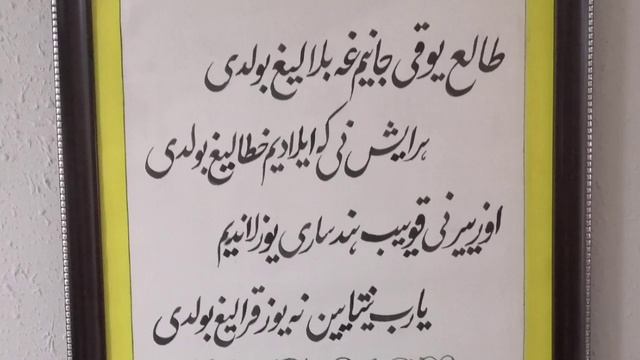 طالع یوقی جانیم غه بلالیغ بولدی
هر ایش نی که ایلادیم خطالیغ بولدی
اوز ییرنی قوییب هند ساری یوزلاندیم
یارب نیتایین نه یوز قرالیغ بولدی